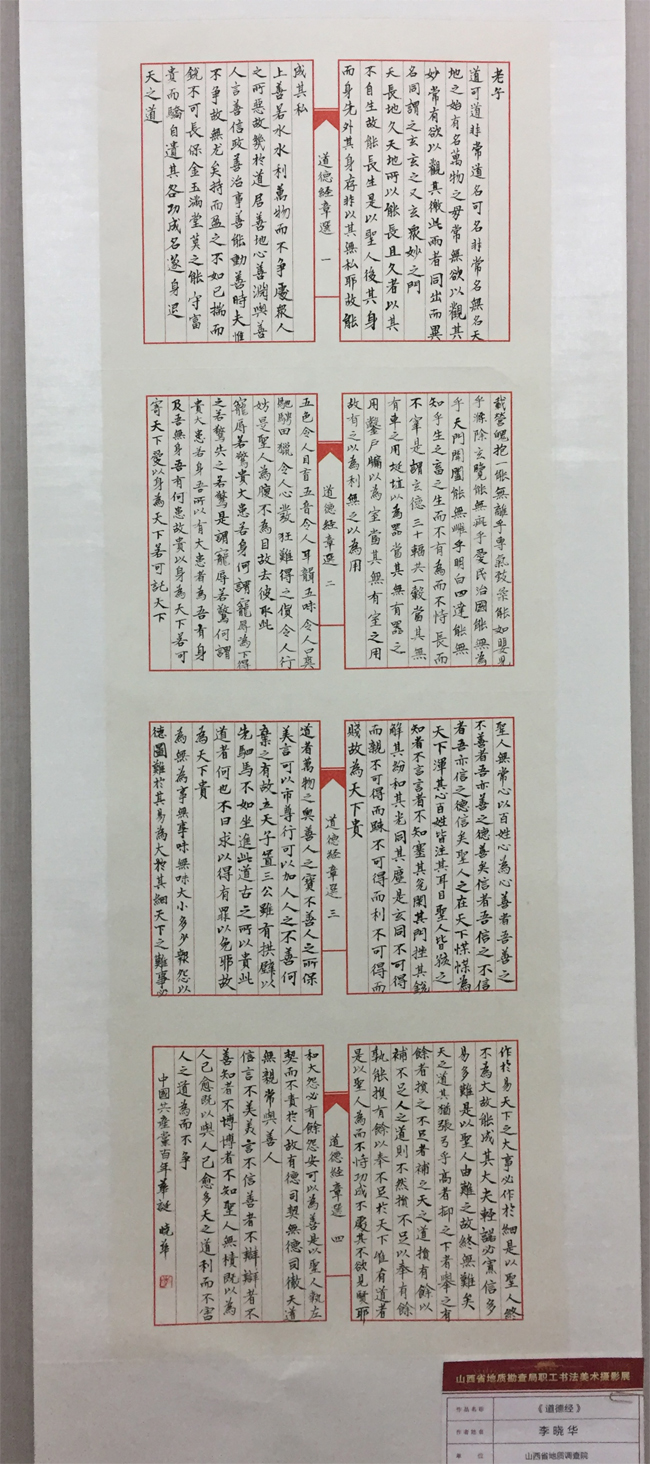 老子
道可道非常道名可名非常名無名天
地之始有名萬物之母常無欲以觀其
妙常有欲以觀其徼此兩者同出而異
名同謂之玄玄之又玄眾妙之門
天長地久天地所以能長且久者以其
不自生故能長生是以聖人後其身
而身先外其身存非以其無私耶故能
道德經章選 一
成其私
上善若水水利萬物而不爭處眾人
之所惡故幾於道居善地心善淵與善
人言善信政善治事善能動善時夫惟
不爭故無尤矣持而盈之不如已揣而
銳不可長保金玉滿堂莫之能守富
貴而驕自遺其咎功成名遂身退
天之道
載營魄抱一能無離乎專氣致柔能如嬰兒
乎滌除玄覽能無疵乎愛民治國能無為
乎天門開闔能無雌乎明白四達能無
知乎生之畜之生而不有為而不恃長而
不宰是謂玄德三十輻共一轂當其無
有車之用埏埴以為器當其無有器之
用鑿戶牖以為室當其無有室之用
故有之以為利無之以為用
道德經章選 二
五色令人目盲五音令人耳聾五味令人口爽
馳騁田獵令人心發狂難得之貨令人行
妨是聖人為腹不為目故去彼取此
寵辱若驚貴大患若身何謂寵辱為下得
之若驚失之若驚是謂寵辱若驚何謂
貴大患若身吾所以有大患者為吾有身
及吾無身吾有何患故貴以身為天下若可
寄天下愛以身為天下若可託天下
聖人無常心以百姓心為心善者吾善之
不善者吾亦善之德善矣信者吾信之不信
者吾亦信之德信矣聖人之在天下惵惵為
天下渾其心百姓皆注其耳目聖人皆孩之
知者不言言者不知塞其兌閉其門挫其銳
解其紛和其光同其塵是玄同不可得
而親不可得而疏不可得而利不可得而
賤故為天下貴
道德經章選 三
道者萬物之奧善人之寶不善人之所保
美言可以市尊行可以加人人之不善何
棄之有故立天子置三公雖有拱璧以
先駟馬不如坐進此道古之所以貴此
道者何也不曰求以得有罪以免耶故
為天下貴
為無為事無事味無味大小多少報怨以
德圖難於其易為大於其細天下之難事必
作於易天下之大事必作於細是以聖人終
不為大故能成其大夫輕諾必寡信多
易多難是以聖人由難之故終無難矣
天之道其猶張弓乎高者抑之下者舉之有
餘者損之不足者補之天之道損有餘以
補不足人之道則不然損不足以奉有餘
孰能損有餘以奉不足於天下唯有道者
是以聖人為而不恃功成不處其不欲見賢耶
道德經章選 四
和大怨必有餘怨安可以為善是以聖人執左
契而不責於人故有德司契無德司徹天道
無親常與善人
信言不美美言不信善者不辯辯者不
善知者不博博者不知聖人無積既以為
人己愈既以與人己愈多天之道利而不害
人之道為而不爭
中國共產黨百年華誕 曉華
山西省地质勘查局职工书法美术摄影展
作品名称 《道德经》
作者姓名 李晓华
单位 山西省地质调查院